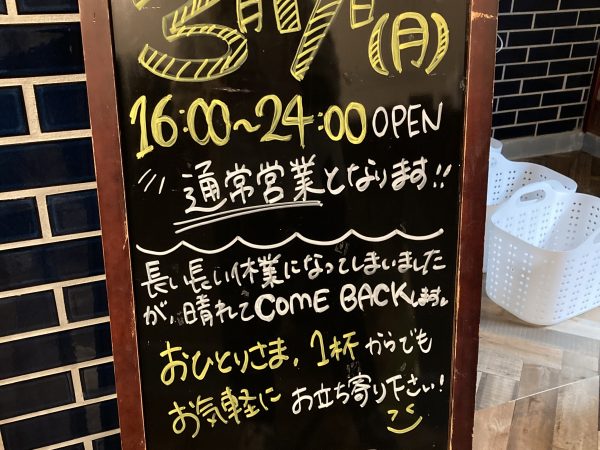 3月7日(月)
16:00~24:00 OPEN
通常営業となります!!
長い長い休業になってしまいました
が、晴れてCOME BACKします。
おひとりさま、1杯からでも
お気軽に お立ち寄り下さい!